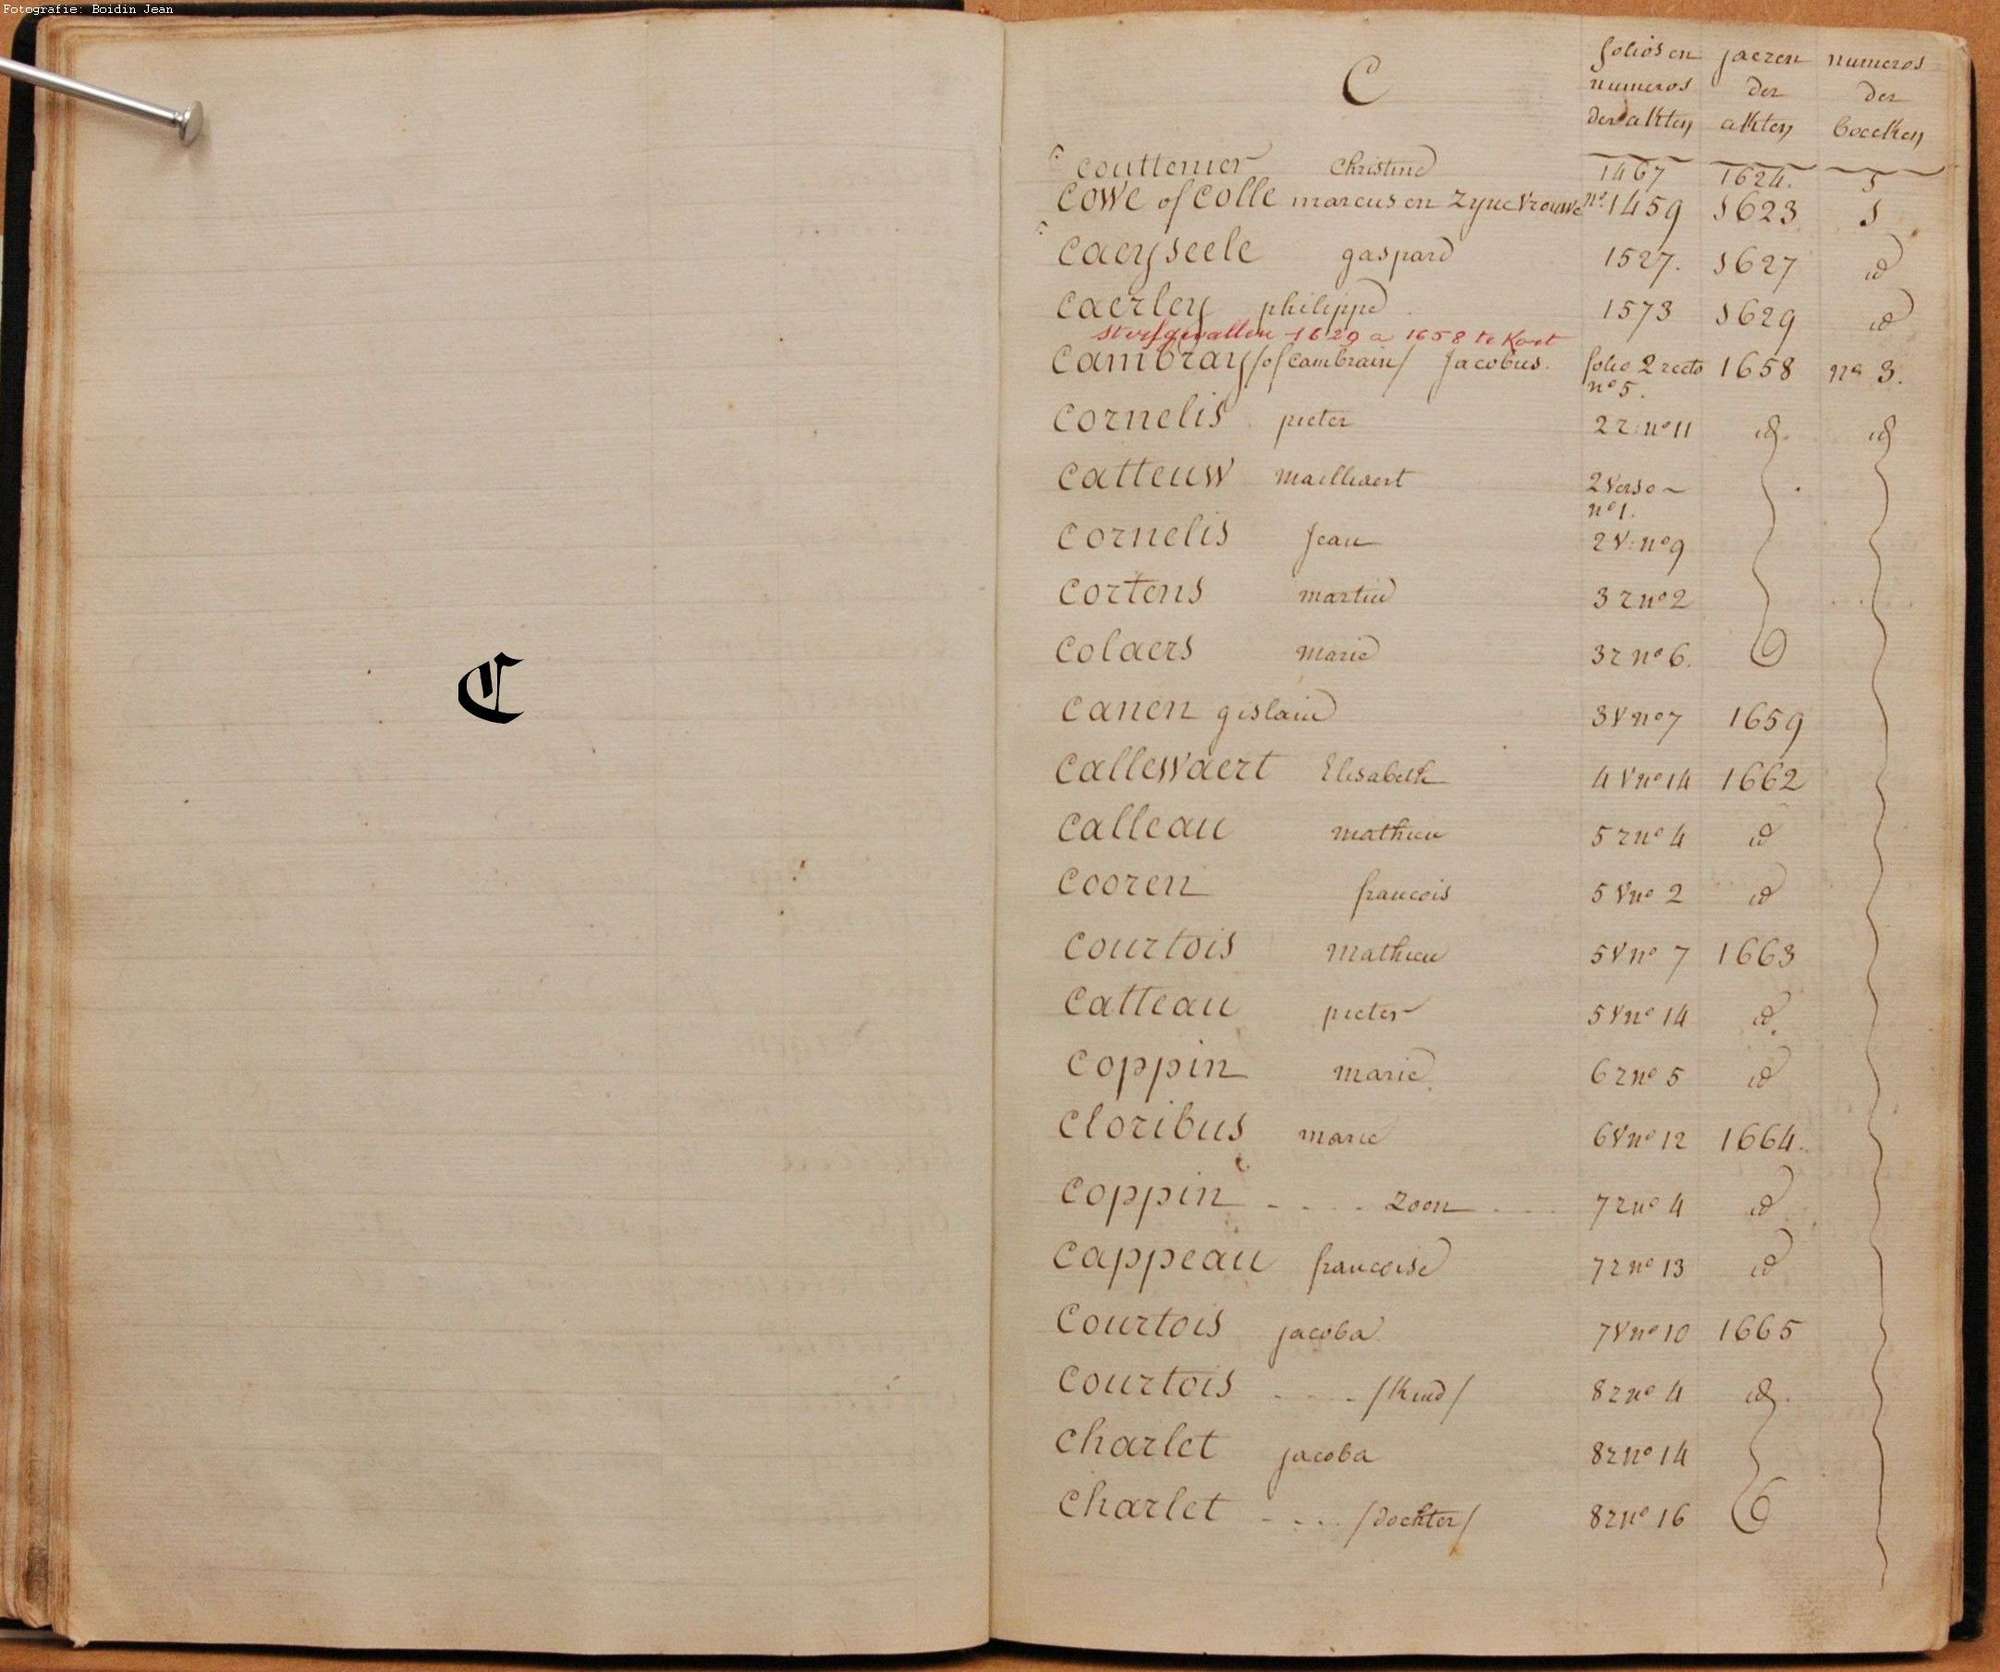 Fotografie: Boidin Jean
C
C
folios en jaeren numeros
numeros der der
der akten akten boecken
couttenier Christine 1467 1624. 1
Cowe of Colle marcus en Zyne Vrouwe nº 1459 1623 1
Caeyseele gaspard 1527. 1627 id
Caerley philippe 1573 1629 id
sterfgevallen 1629 a 1658 te Kort
Cambray /of cambrain/ Jacobus. folio 2 recto 1658 nº 3.
nº 5.
Cornelis pieter 2 r: nº 11 id. id
Catteuw maillaert 2 verso
nº 1.
Cornelis Jean 2 V: nº 9
Cortens martin 3 r nº 2
Colaers marie 3 r nº 6.
Canen gislain 3 V nº 7 1659
Callewaert Elisabeth 4 V nº 14 1662
Calleau mathieu 5 r nº 4 id
Cooren francois 5 V nº 2 id
Courtois Mathieu 5 V nº 7 1663
Catteau pieter 5 V nº 14 id.
Coppin marie 6 r nº 5 id
Cloribus marie 6 V nº 12 1664.
Coppin - - - - Zoon - - - 7 r nº 4 id
Cappeau francoise 7 r nº 13 id
Courtois jacoba 7 V nº 10 1665
Courtois - - - - /Kind/ 8 r nº 4 id.
Charlet jacoba 8 r nº 14
Charlet - - - - /dochter/ 8 r nº 16